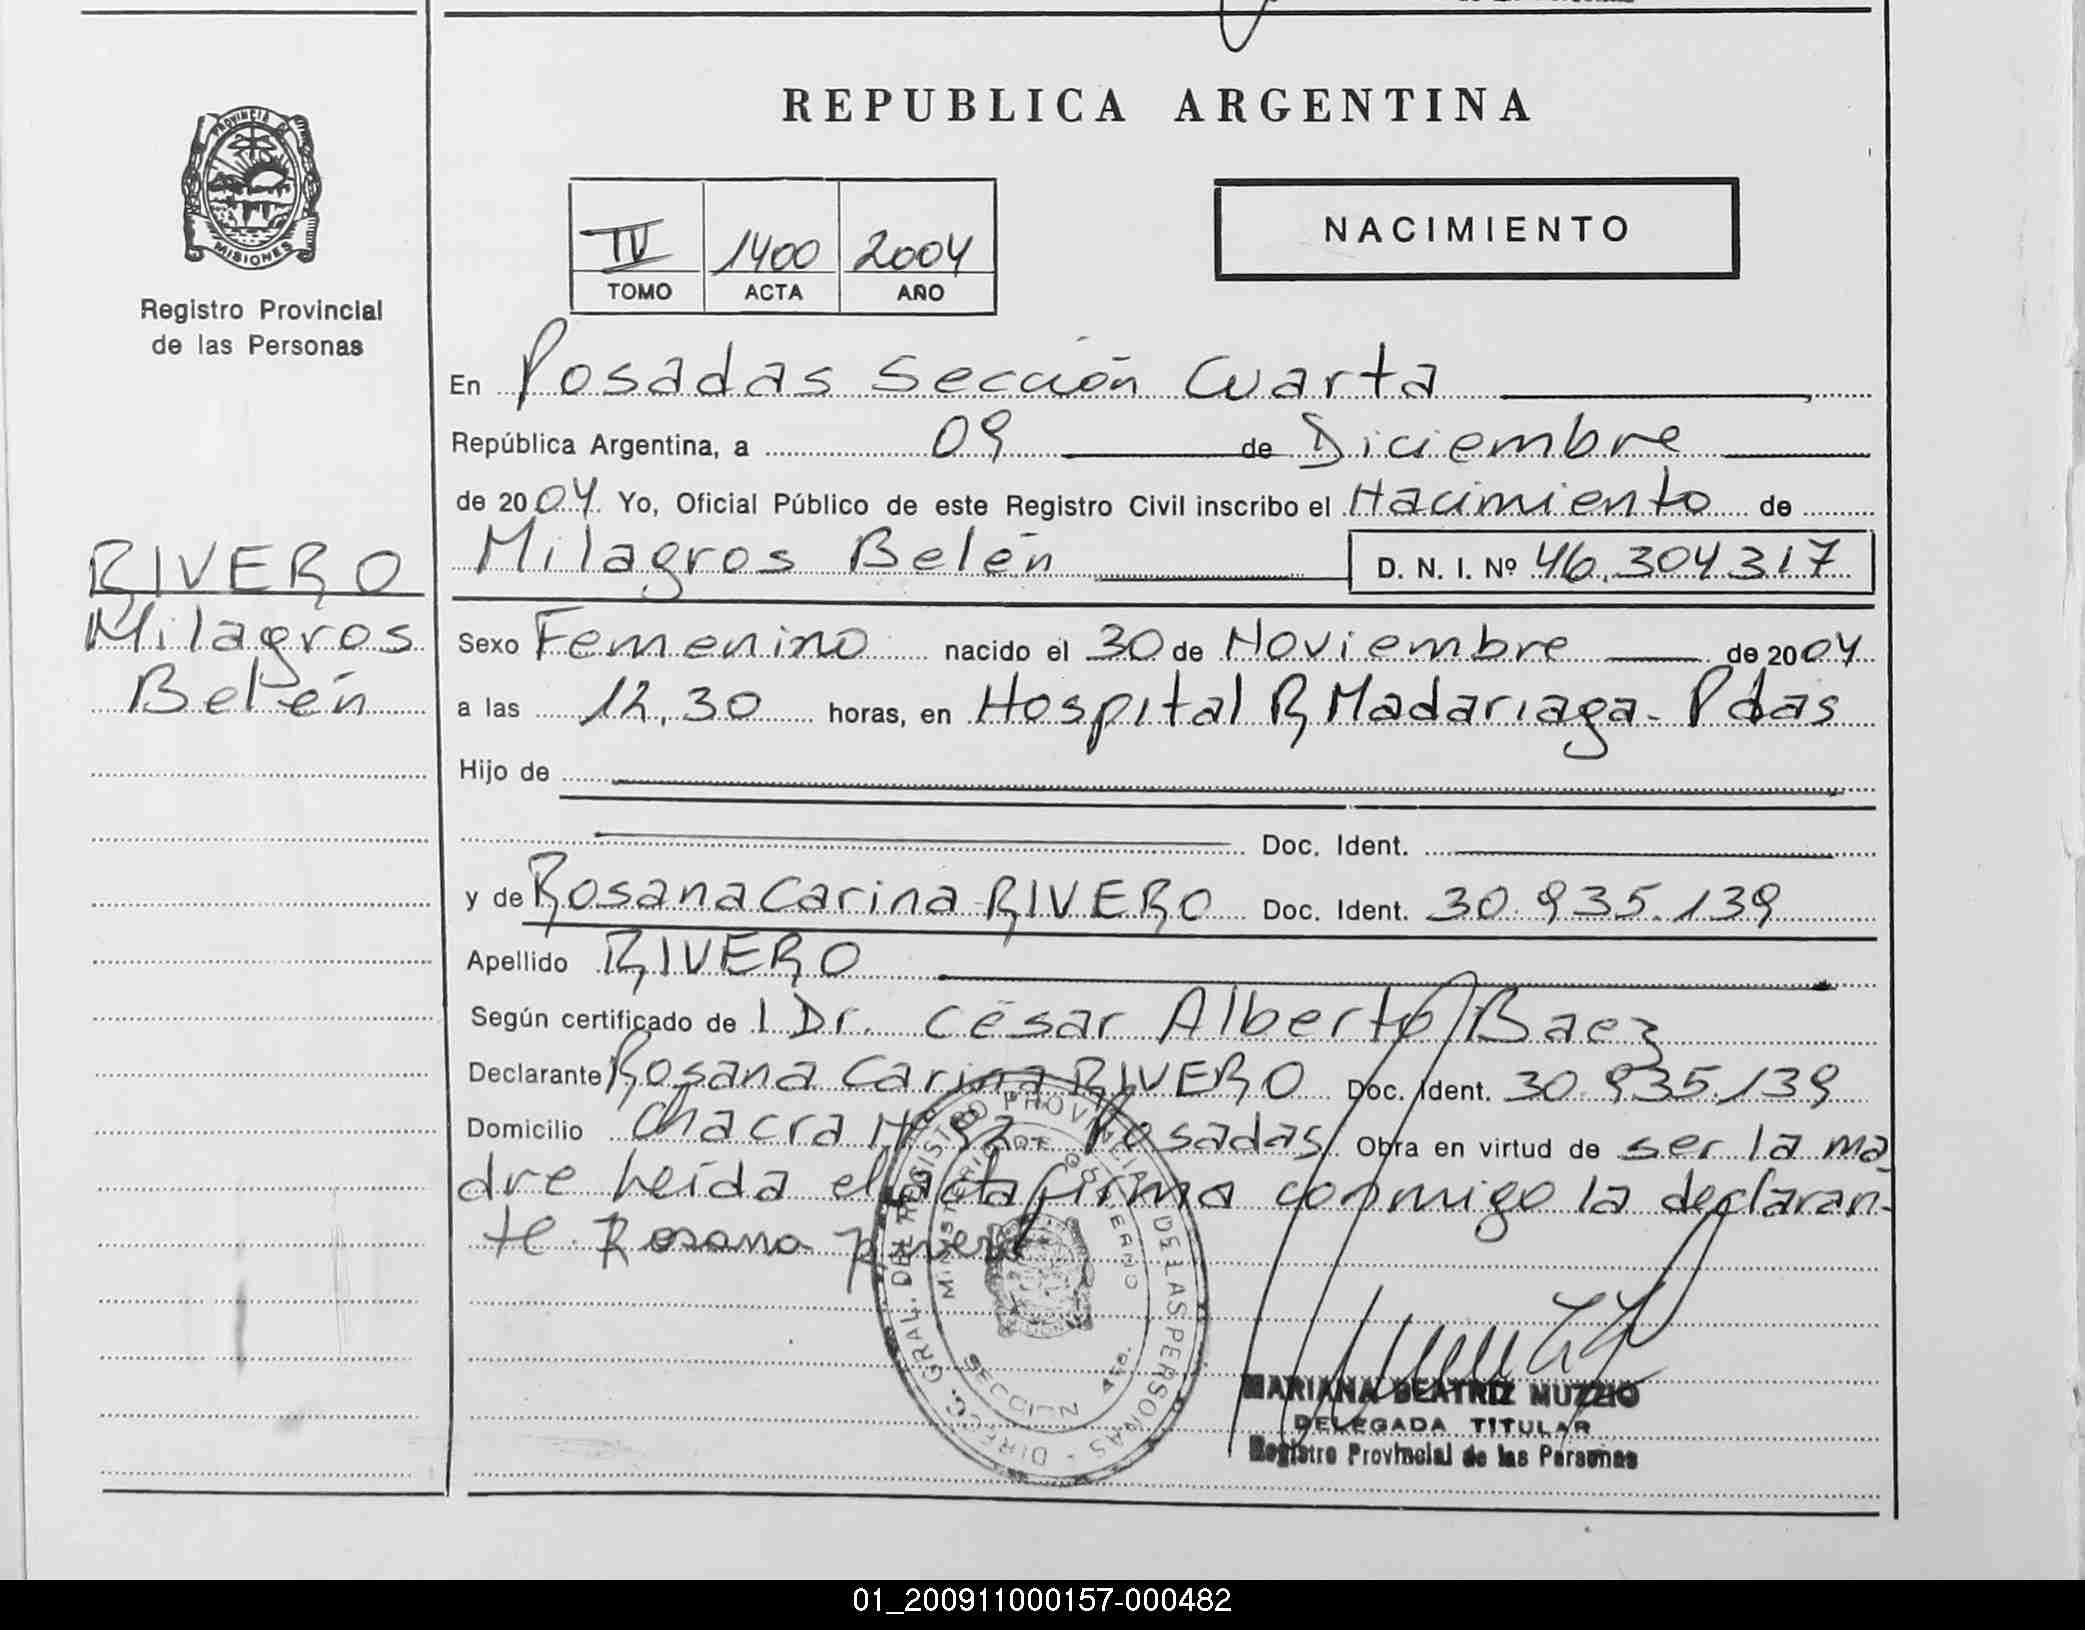 REPUBLICA ARGENTINA
PROVINCIA DE
MISIONES
Registro Provincial
de las Personas
NACIMIENTO
IV 1400 2004
TOMO ACTA AÑO
En Posadas Sección Cuarta
República Argentina, a 09 de Diciembre
de 2004 Yo, Oficial Público de este Registro Civil inscribo el Nacimiento de
Milagros Belén D. N. I. Nº 46.304317
RIVERO
Milagros
Belén
Sexo Femenino nacido el 30 de Noviembre de 2004
a las 12,30 horas, en Hospital R Madariaga - Pdas
Hijo de
Doc. Ident.
y de Rosana Carina RIVERO Doc. Ident. 30.935.139
Apellido RIVERO
Según certificado de l Dr. César Alberto Baez
Declarante Rosana Carina RIVERO Doc. Ident. 30.935.139
Domicilio Chacra Nº 92 Posadas Obra en virtud de ser la ma
dre leída el acta firma conmigo la declaran-
te. Rosana Rivero
DIRECC. GRAL. DEL REGISTRO PROVINCIAL DE LAS PERSONAS -
MINISTERIO DE GOBIERNO
SECCION 4ta.
MARIANA BEATRIZ MUZZIO
DELEGADA TITULAR
Registro Provincial de las Personas
01_200911000157-000482